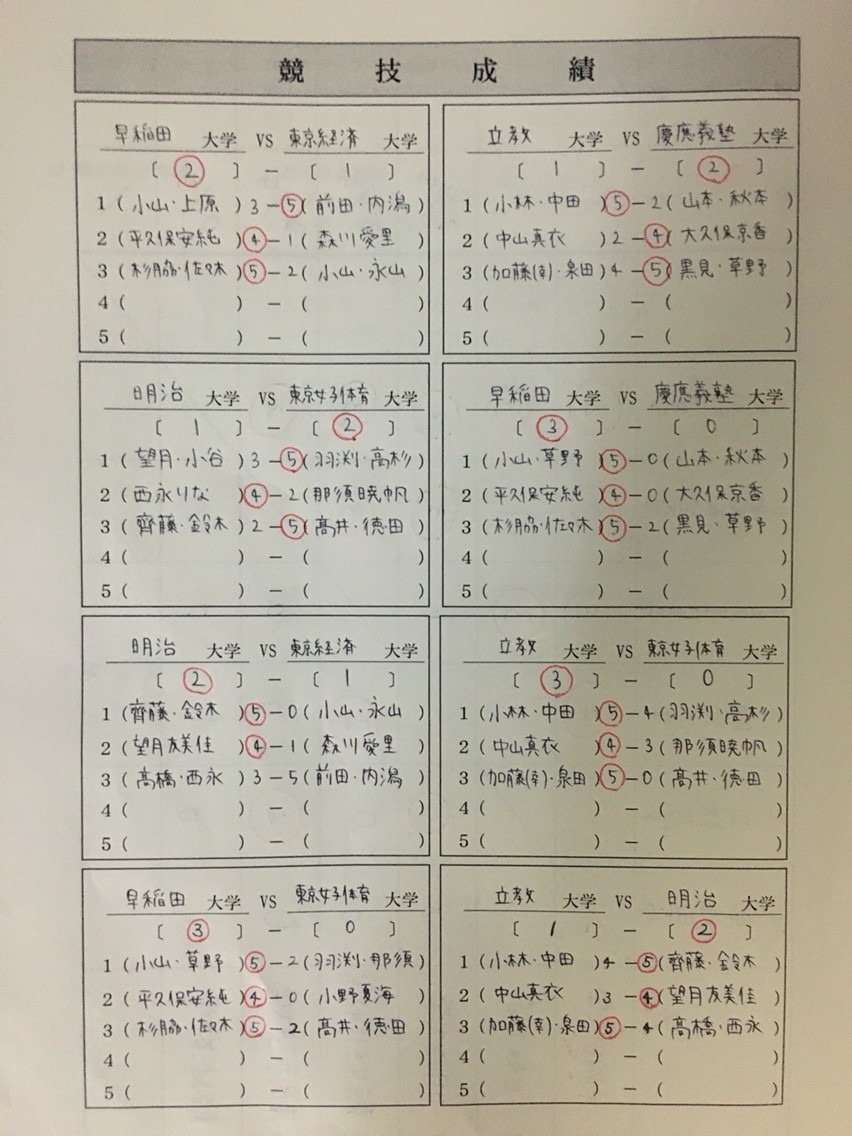 競技成績
早稲田 大学 VS 東京経済 大学
〔 ② 〕 － 〔 1 〕
1 ( 小山・上原 ) 3 － ⑤ ( 前田・内潟 )
2 ( 平久保安純 ) ④ － 1 ( 森川愛里 )
3 ( 杉脇・佐々木 ) ⑤ － 2 ( 小山・永山 )
4 ( ) － ( )
5 ( ) － ( )
立教 大学 VS 慶應義塾 大学
〔 1 〕 － 〔 ② 〕
1 ( 小林・中田 ) ⑤ － 2 ( 山本・秋本 )
2 ( 中山真衣 ) 2 － ④ ( 大久保京香 )
3 ( 加藤(南)・泉田 ) 4 － ⑤ ( 黒見・草野 )
4 ( ) － ( )
5 ( ) － ( )
明治 大学 VS 東京女子体育 大学
〔 1 〕 － 〔 ② 〕
1 ( 望月・小谷 ) 3 － ⑤ ( 羽渕・高杉 )
2 ( 西永りな ) ④ － 2 ( 那須暁帆 )
3 ( 齊藤・鈴木 ) 2 － ⑤ ( 髙井・徳田 )
4 ( ) － ( )
5 ( ) － ( )
早稲田 大学 VS 慶應義塾 大学
〔 ③ 〕 － 〔 0 〕
1 ( 小山・草野 ) ⑤ － 0 ( 山本・秋本 )
2 ( 平久保安純 ) ④ － 0 ( 大久保京香 )
3 ( 杉脇・佐々木 ) ⑤ － 2 ( 黒見・草野 )
4 ( ) － ( )
5 ( ) － ( )
明治 大学 VS 東京経済 大学
〔 ② 〕 － 〔 1 〕
1 ( 齊藤・鈴木 ) ⑤ － 0 ( 小山・永山 )
2 ( 望月友美佳 ) ④ － 1 ( 森川愛里 )
3 ( 髙橋・西永 ) 3 － 5 ( 前田・内潟 )
4 ( ) － ( )
5 ( ) － ( )
立教 大学 VS 東京女子体育 大学
〔 ③ 〕 － 〔 0 〕
1 ( 小林・中田 ) ⑤ － 4 ( 羽渕・高杉 )
2 ( 中山真衣 ) ④ － 3 ( 那須暁帆 )
3 ( 加藤(南)・泉田 ) ⑤ － 0 ( 髙井・徳田 )
4 ( ) － ( )
5 ( ) － ( )
早稲田 大学 VS 東京女子体育 大学
〔 ③ 〕 － 〔 0 〕
1 ( 小山・草野 ) ⑤ － 2 ( 羽渕・那須 )
2 ( 平久保安純 ) ④ － 0 ( 小野夏海 )
3 ( 杉脇・佐々木 ) ⑤ － 2 ( 髙井・徳田 )
4 ( ) － ( )
5 ( ) － ( )
立教 大学 VS 明治 大学
〔 1 〕 － 〔 ② 〕
1 ( 小林・中田 ) 4 － ⑤ ( 齊藤・鈴木 )
2 ( 中山真衣 ) 3 － ④ ( 望月友美佳 )
3 ( 加藤(南)・泉田 ) ⑤ － 4 ( 髙橋・西永 )
4 ( ) － ( )
5 ( ) － ( )